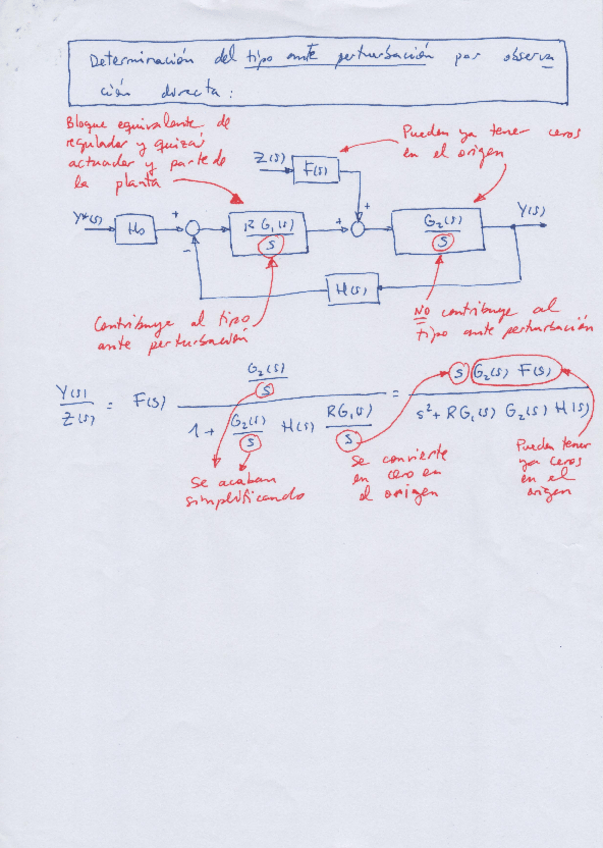 Determinación del tipo ante perturbación por observa
ción directa:
Bloque equivalente de
regulador y quizás
actuador y parte de
la planta
Pueden ya tener ceros
en el origen
Z(s)
F(s)
Y*(s)
H0
+
-
R G1(s)
s
+
+
G2(s)
s
Y(s)
H(s)
Contribuye al tipo
ante perturbación
NO contribuye al
tipo ante perturbación
Y(s)
Z(s)
= F(s)
G2(s)
s
1 + G2(s)/s H(s) RG1(s)/s
=
s G2(s) F(s)
s² + RG1(s) G2(s) H(s)
Se acaban
simplificando
Se convierte
en cero en
el origen
Pueden tener
ya ceros
en el
origen